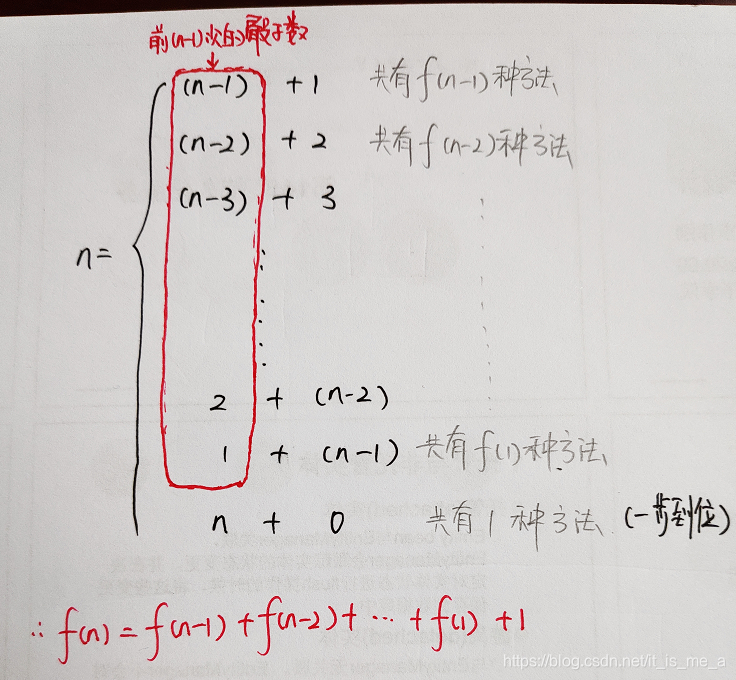 前(n-1)次的骰子数
(n-1) + 1 共有f(n-1)种方法
(n-2) + 2 共有f(n-2)种方法
(n-3) + 3
n=
2 + (n-2)
1 + (n-1) 共有f(1)种方法
n + 0 共有1种方法 (一步到位)
∴ f(n) = f(n-1) + f(n-2) + ··· + f(1) + 1
https://blog.csdn.net/it_is_me_a